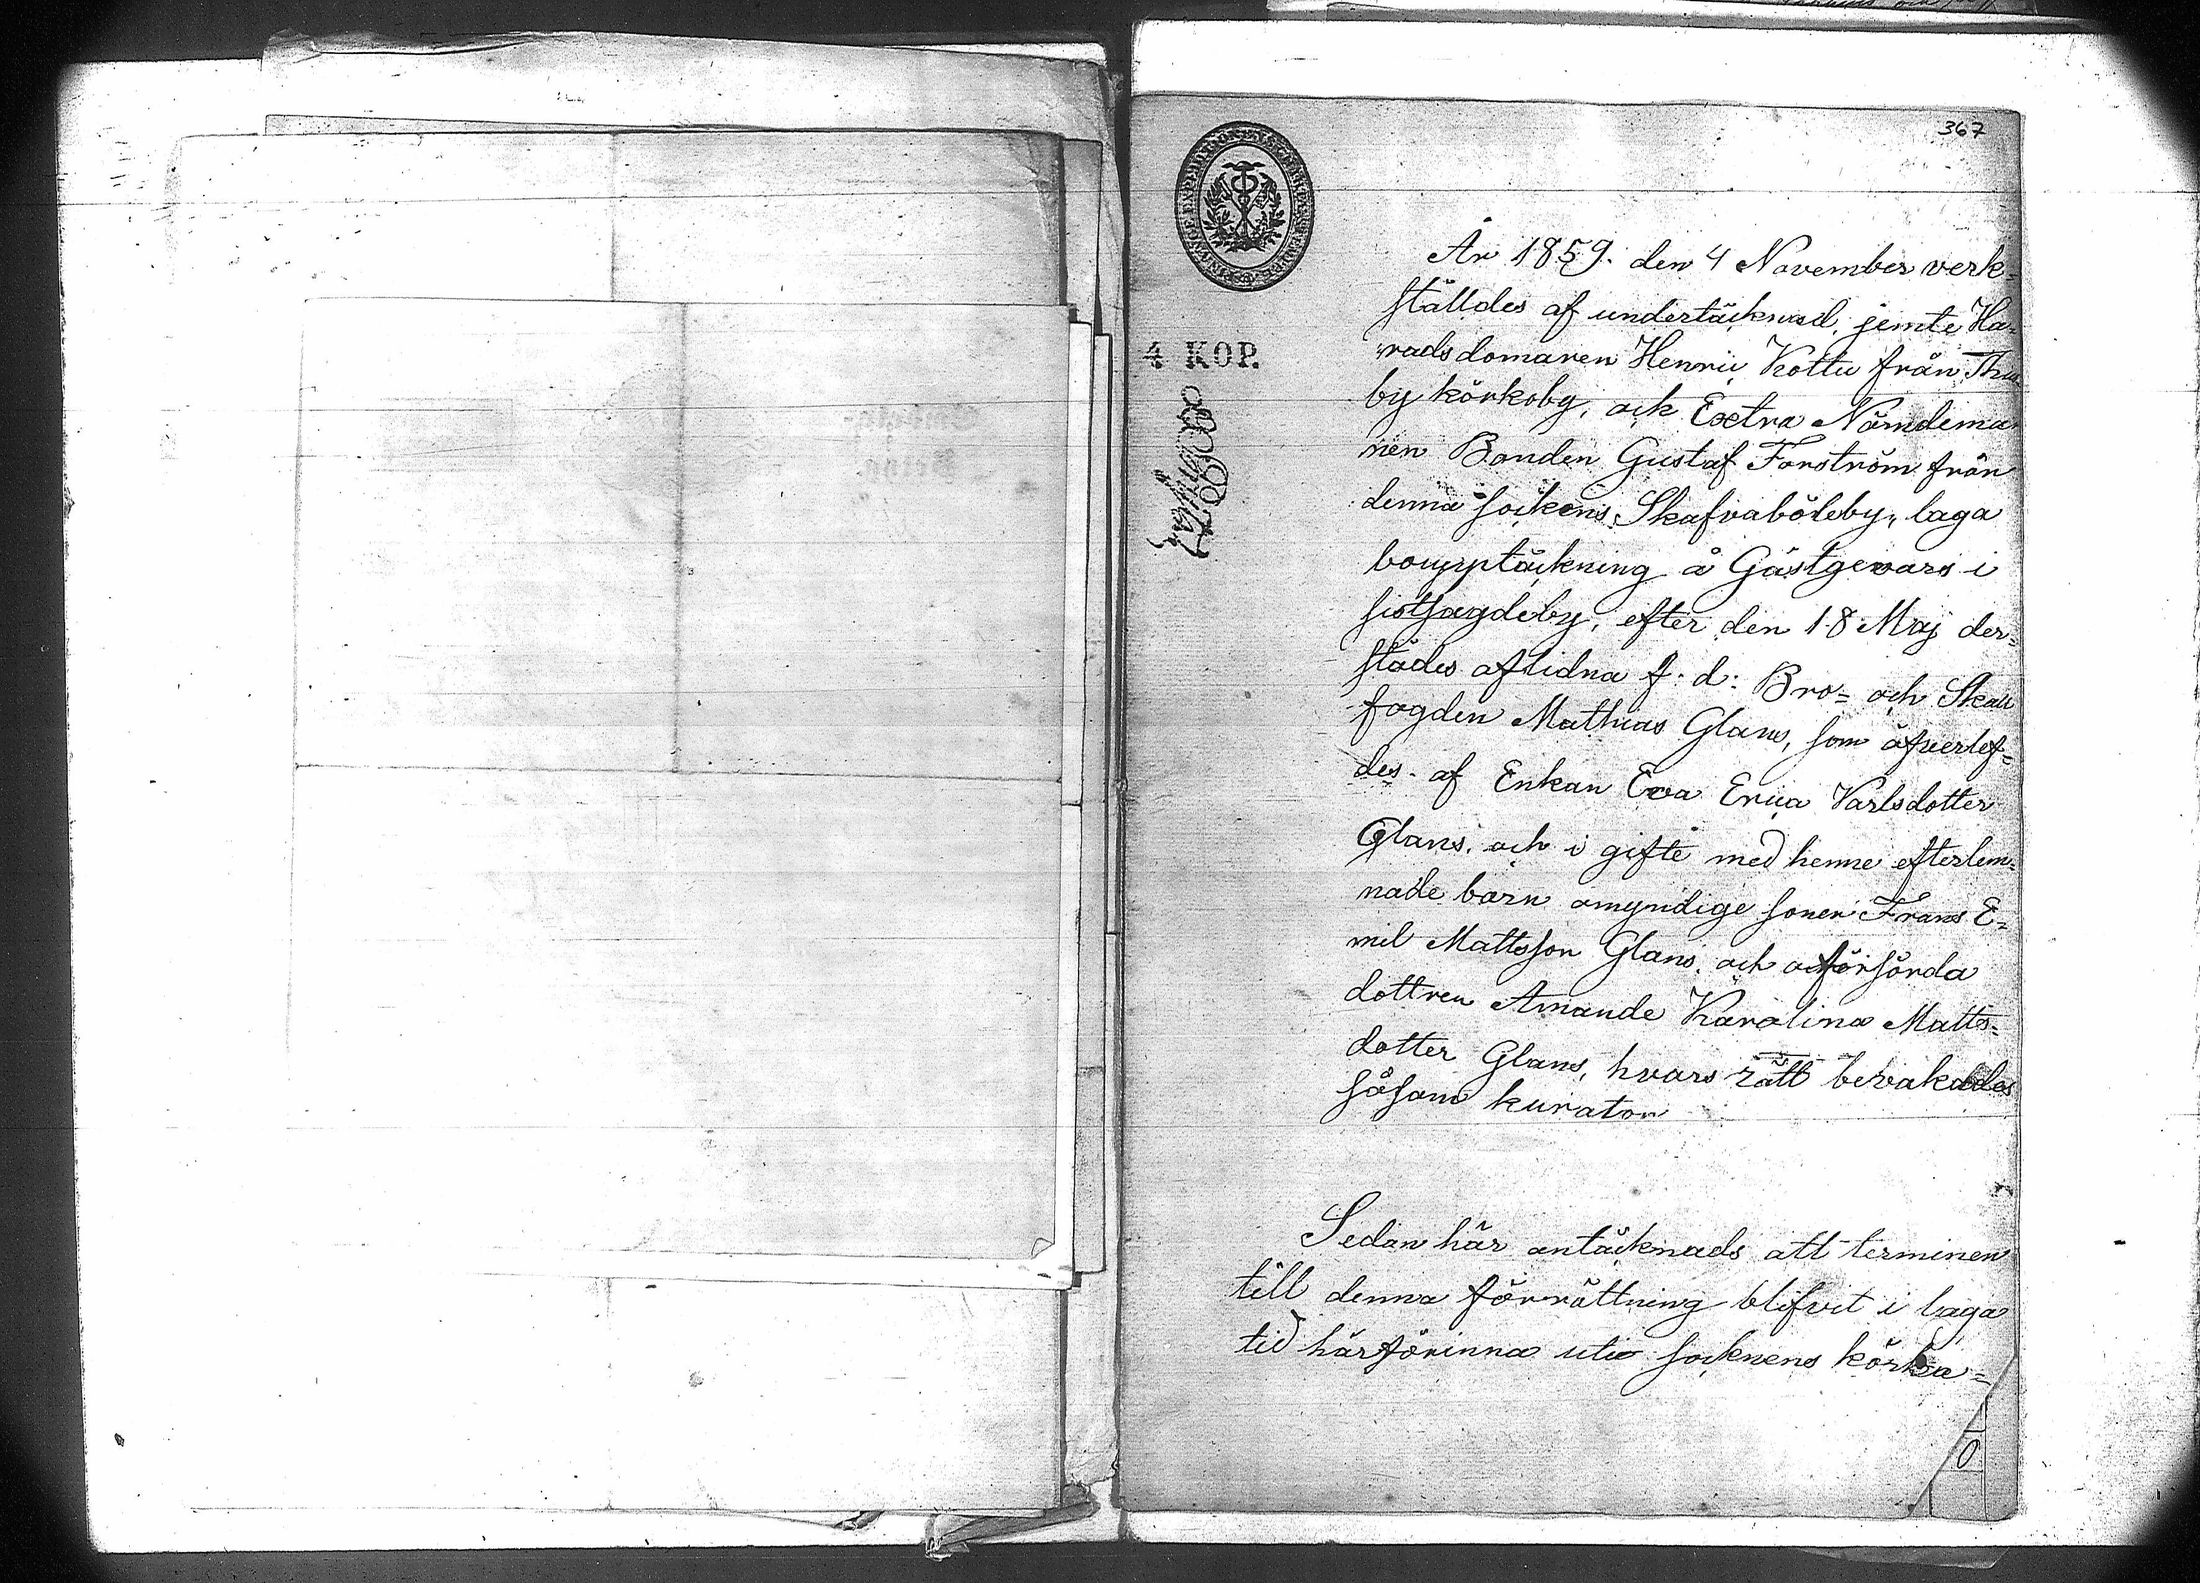 367
4 KOP.
År 1859. den 4 November verk=
ställdes af undertäcknad, jemte Hä=
radsdomaren Henric Kottu från Thu
by körkoby, ock Extra Nämdema
nen Bonden Gustaf Forström från
denna sockens Skafvaböleby, laga
bouyptäckning å Gästgevars i
sistsagdeby, efter den 18 Maj der=
städes aflidna f. d: Bro= och Skall
fogden Mathias Glans, som öfverlef=
des af Enkan Eva Erica Karlsdotter
Glans, och i gifte med henne efterlem=
nade barn omyndige sonen Frans E=
mil Mattsson Glans, och oförsörda
dottren Amanda Karolina Matts=
dotter Glans, hvars rätt bevakades
såsom kurator
Sedan här antäcknads att terminen
till denna förrättning blifvit i laga
tid härförinna uti socknens körka=